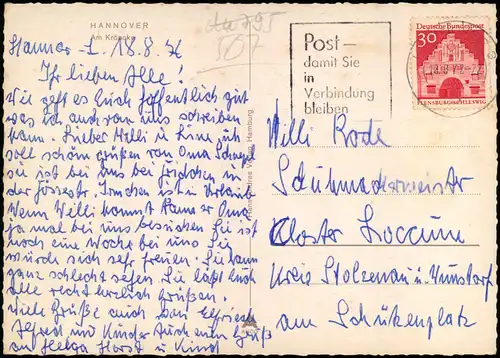 HANNOVER
Am Kröpcke
Hannover 1. 18.8.
Ihr lieben Alle!
Wie geht es Euch hoffentlich gut
was ich auch von uns schreiben
kann. Lieber Willi und Künu ich
soll schön grüßen von Oma
sie ist bei uns bei Friedchen in
der Jösestr. Irmchen ist in Urlaub
Wenn Willi kommt kann er Oma
ja mal bei uns besuchen Sie ist
noch eine Woche bei uns Sie
würde sich sehr freuen. Sie kann
ganz schlecht sehen Sie läßt Euch
alle recht herzlich Grüßen.
Viele Grüße auch von Elfriede
Alfred und Kinder Auch einen Gruß
an Helga Horst u Kind
Post –
damit Sie
in
Verbindung
bleiben
Deutsche Bundespost
30
FLENSBURG/SCHLESWIG
Willi Rode
Schuhmachermeister
Kloster Loccum
Kreis Stolzenau über Wunstorf
am Schützenplatz